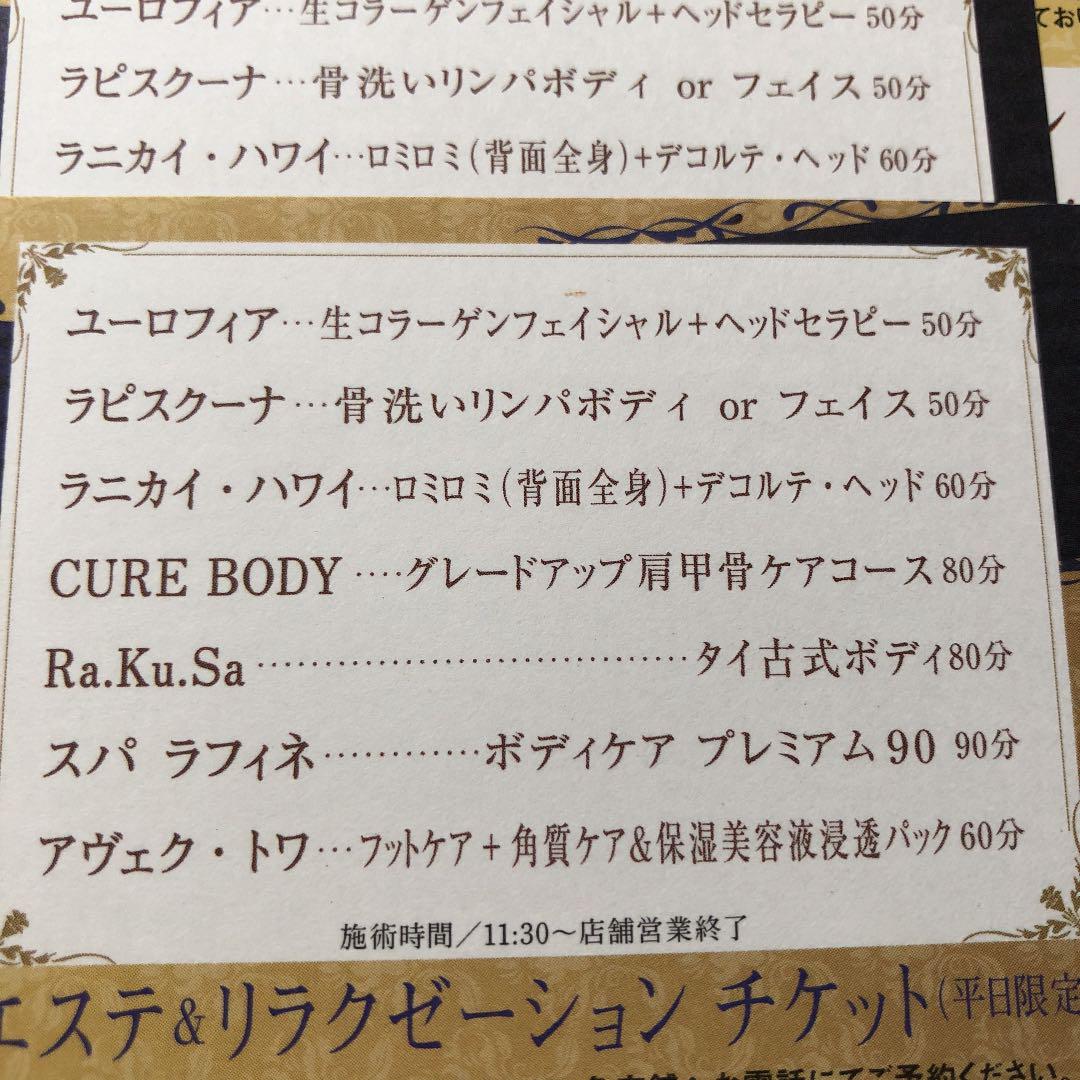 ユーロフィア…生コラーゲンフェイシャル＋ヘッドセラピー 50分
ラピスクーナ…骨洗いリンパボディ or フェイス 50分
ラニカイ・ハワイ…ロミロミ(背面全身)+デコルテ・ヘッド 60分
ユーロフィア…生コラーゲンフェイシャル＋ヘッドセラピー 50分
ラピスクーナ…骨洗いリンパボディ or フェイス 50分
ラニカイ・ハワイ…ロミロミ(背面全身)+デコルテ・ヘッド 60分
CURE BODY ‥‥グレードアップ肩甲骨ケアコース 80分
Ra.Ku.Sa ……………………………タイ古式ボディ80分
スパ ラフィネ…………ボディケア プレミアム90 90分
アヴェク・トワ…フットケア＋角質ケア&保湿美容液浸透パック 60分
施術時間／11:30～店舗営業終了
エステ&リラクゼーション チケット(平日限定
お電話にてご予約ください。